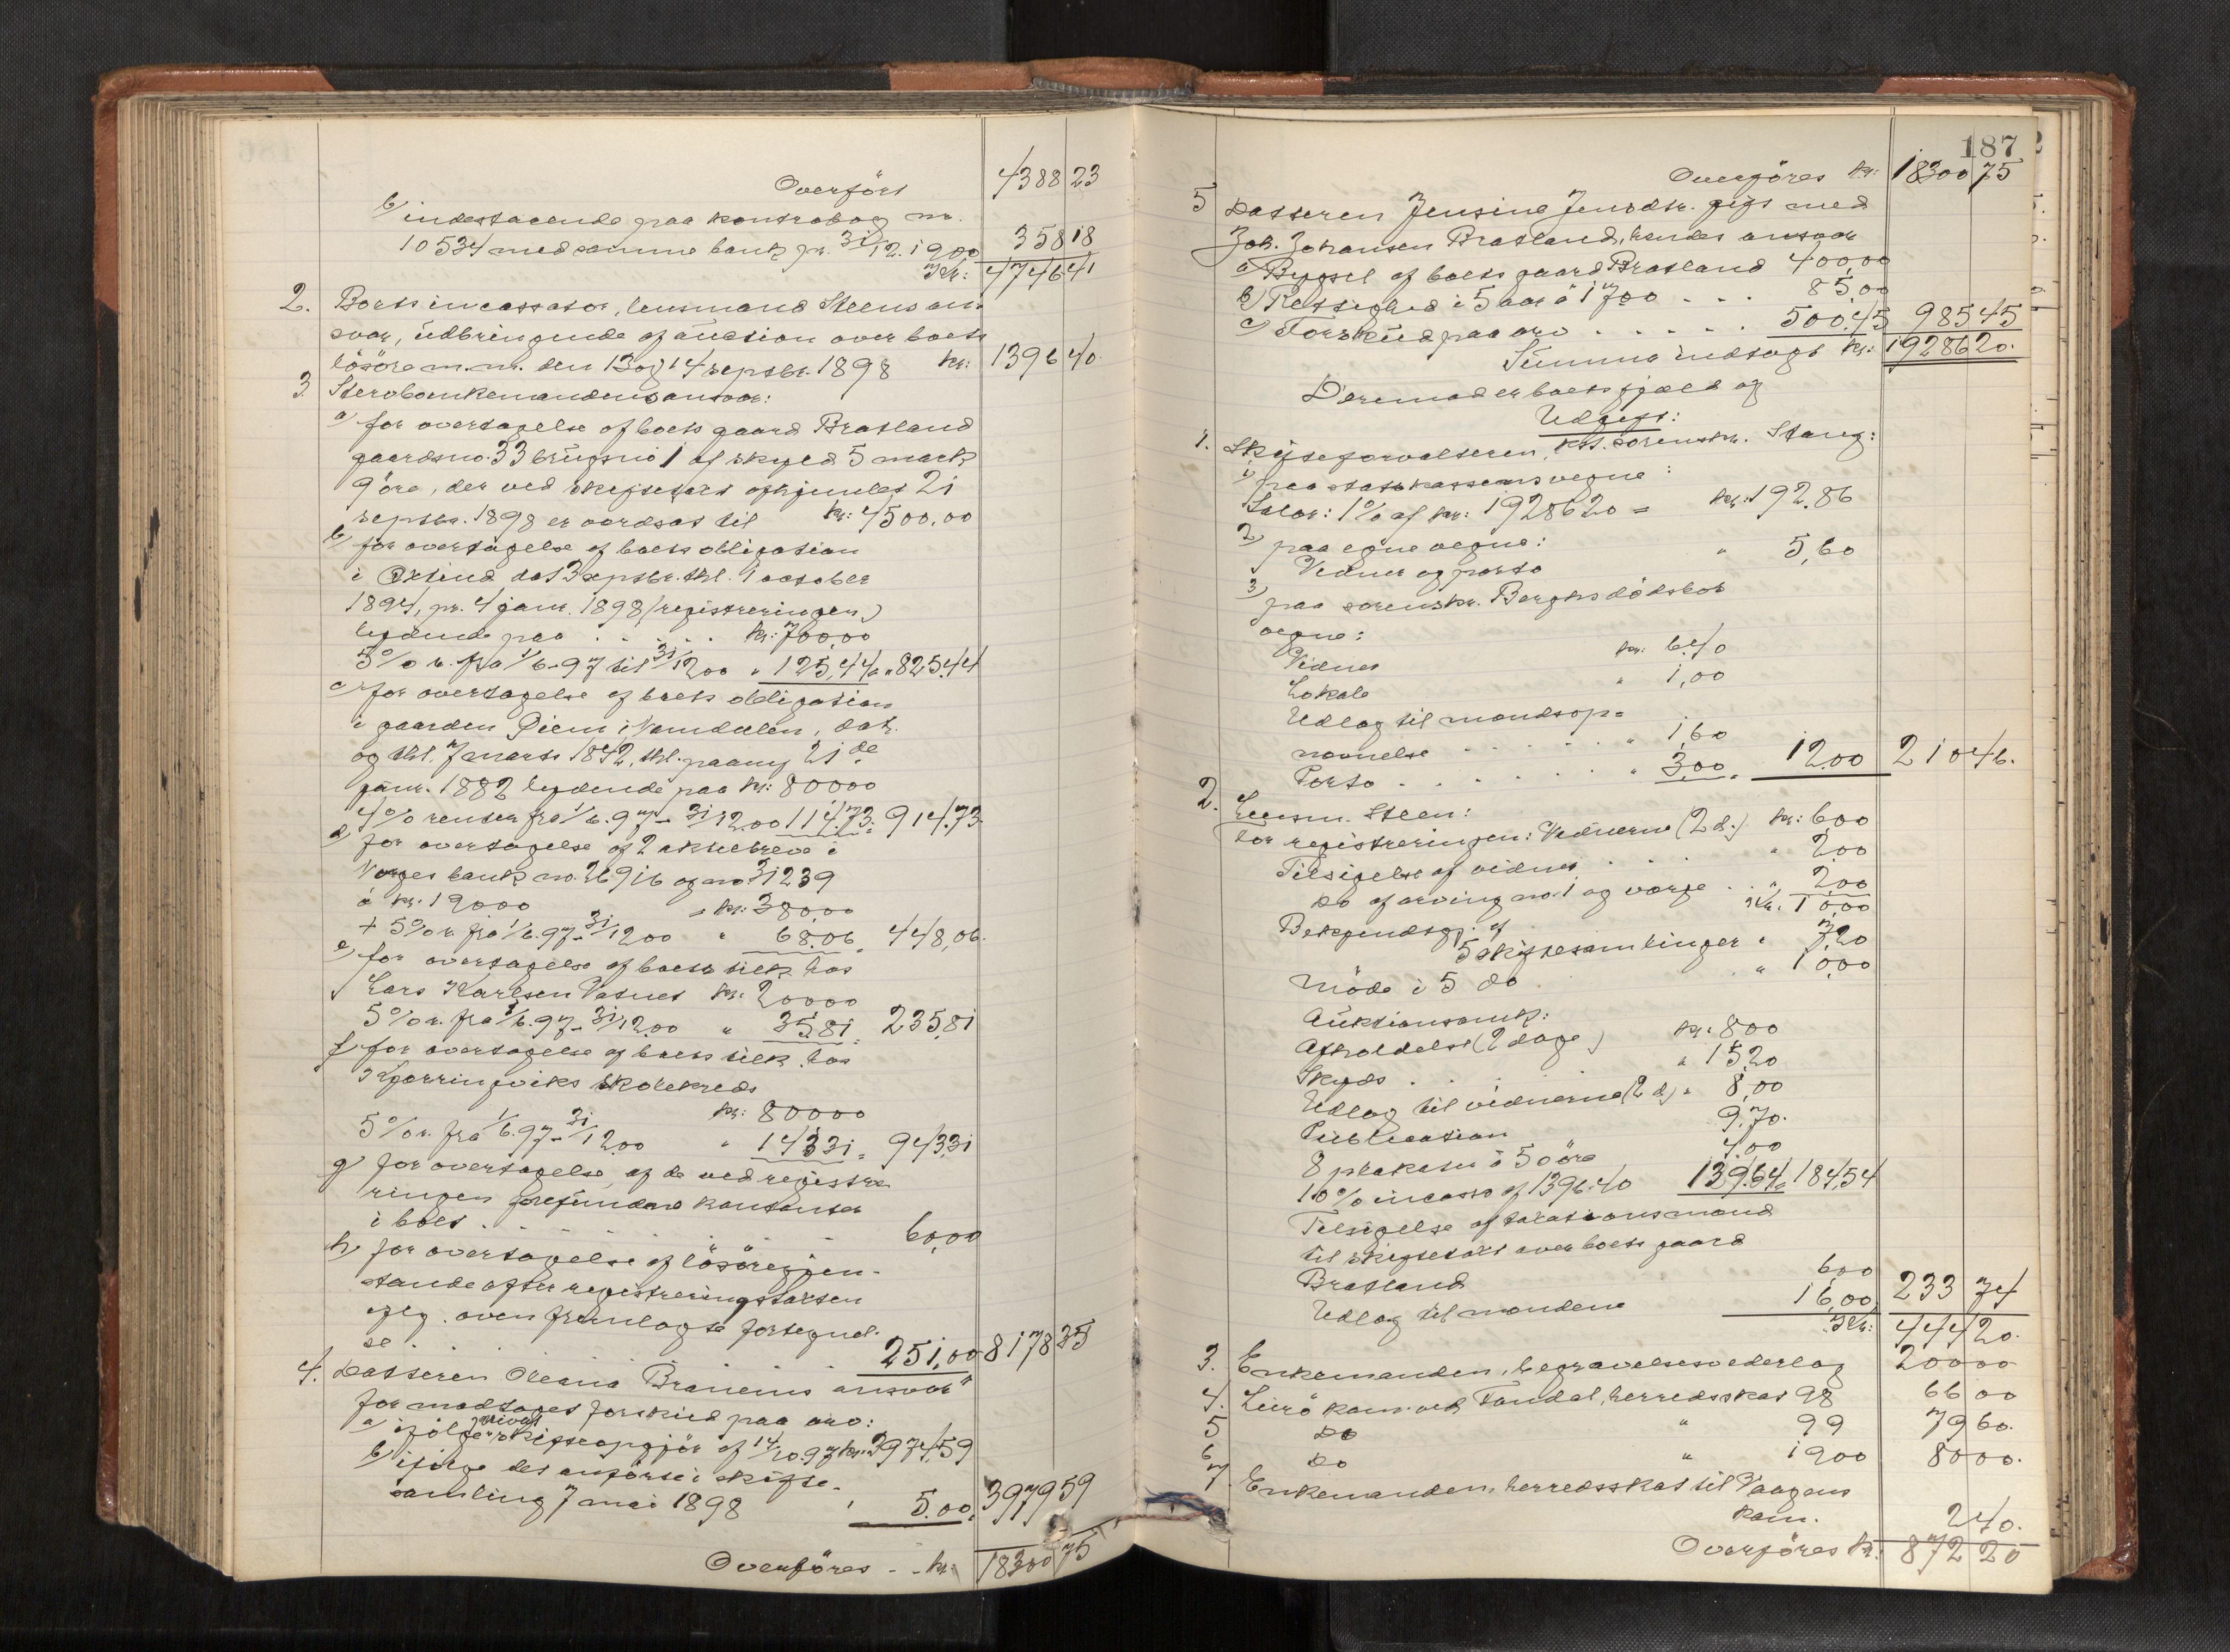 Overført 4388 23
b) indestaaende paa kontrabog nr.
10534 med samme bank pr. 31/12.1900 358 18
Kr: 4746 41
2. Boets incassator, lensmand Steens an-
svar, udbringende af auction over boets
løsøre m.m. den 13 og 14 septbr. 1898 kr: 1396 40
3. Stervboenkemandens ansvar:
a) for overtagelse af boets gaard Bratland
gaardsno. 33 brugsno 1 af skyld 5 mark
9 øre, der ved skiftetaxt afhjemlet 21
septbr. 1898 er værdsat til kr: 4500.00
b) for overtagelse af boets obligation
i Øxtind dat 3 septbr. thl. 1 october
1894, pr. 4 janr. 1898 (registreringen)
lydende paa . . . . . kr: 700,00
5% r. fra 1/6-97 til 31/12 00 " 125,44 = " 825.44
c) for overtagelse af boets obligation
i gaarden Diem i Namdalen, dat.
og thl. 7 marts 1842, thl. paany 21de
janr. 1882 lydende paa kr: 800 00
4% renter fra 1/6.97 - 31/12.00 114.73 = 914.73
d) for overtagelse af 2 aktiebreve i
Norges bank no. 26916 og no 31239
á kr. 190 00 = kr: 380,00
+ 5% r. fra 1/6.97 - 31/12 00 " 68.06 = 448,06.
e) for overtagelse af boets tilk. hos
Lars Karlsen Vatnet kr: 200 00
5% r. fra 1/6.97 - 31/12.00 " 35,81 = 235,81
f) for overtagelse af boets tilk. hos
Kjerringviks skolekreds
kr: 800 00
5% r. fra 1/6.97 - 31/12.00 " 143 31 = 943,31
g) for overtagelse af de ved registre-
ringen forefundne kontanter
i boet . . . . . . 60,00
h) for overtagelse af løsøregjen-
stande efter registreringstaxten
iflg. oven fremlagte fortegnel-
se . . . . . . 251,00 8178 35
4. Datteren Oleana Branems ansvar
for modtaget forskud paa arv:
a) ifølge privat skifteopgjør af 14/10.97 kr: 3974,59
b) ifølge det anførte i skifte-
samling 7 mai 1898 " 5.00 = 3979 59
Overføres - - kr: 18300 75
187
Overføres kr: 18300 75
5 Datteren Jensine Jensdtr. gift med
Joh. Johansen Bratland, hendes ansvar
a) Bygsel af boets gaard Bratland 400,00
b) Rettighed i 5 aar á 17 00 - - - 85,00
c) Forskud paa arv . . . . . 500,45 985 45
Summa indtægt kr: 19286 20.
Deremod er boets gjæld og
Udgift:
1. Skifteforvalteren, kst. sorenskr. Stang:
1) paa statskassens vegne:
Salær: 1% af kr: 19286 20 = kr: 192.86
2) paa egne vegne:
Vidner og porto " 5,60
3) paa sorenskr. Berghs dødsbos
vegne:
Vidner kr: 6.40
Lokale " 1,00
Udlæg til mandsop=
nævnelse . . . . . " 1,60
Porto . . . . . " 3,00 = 12,00 210 46.
2. Lensm. Steen:
for registreringen: Vidnerne (2 d.) kr: 6 00
Tilsigelse af vidner . . . " 2,00
Do af arving no. 1 og værge . . " 2,00
Kr. 10,00
Bekjendtgj. af
5 skiftesamlinger " 7,20
Møde i 5 do " 10,00
Auktionsomk:
Afholdelse (2 dage) kr: 8 00
Skyds . . . . " 15,20
Udlæg til vidnerne (2 d.) " 8,00
Publication 9,70.
8 plakater á 50 øre 4.00
10% incasso af 1396.40 139.64 = 184,54
Tilsigelse af taxationsmænd
til skiftetaxt over boets gaard
Bratland 6 00
Udlæg til mændene 16,00 233 74
Kr: 444 20.
3. Enkemanden, begravelsesvederlag 200 00
4. Lurø kom. ved Tøndal, herredsskat 98 66 00
5 Do " 99 79 60.
6 Do " 1900 80 00.
7 Enkemanden, herredsskat til Vaagens
kom. 2 40.
Overføres kr: 872 20